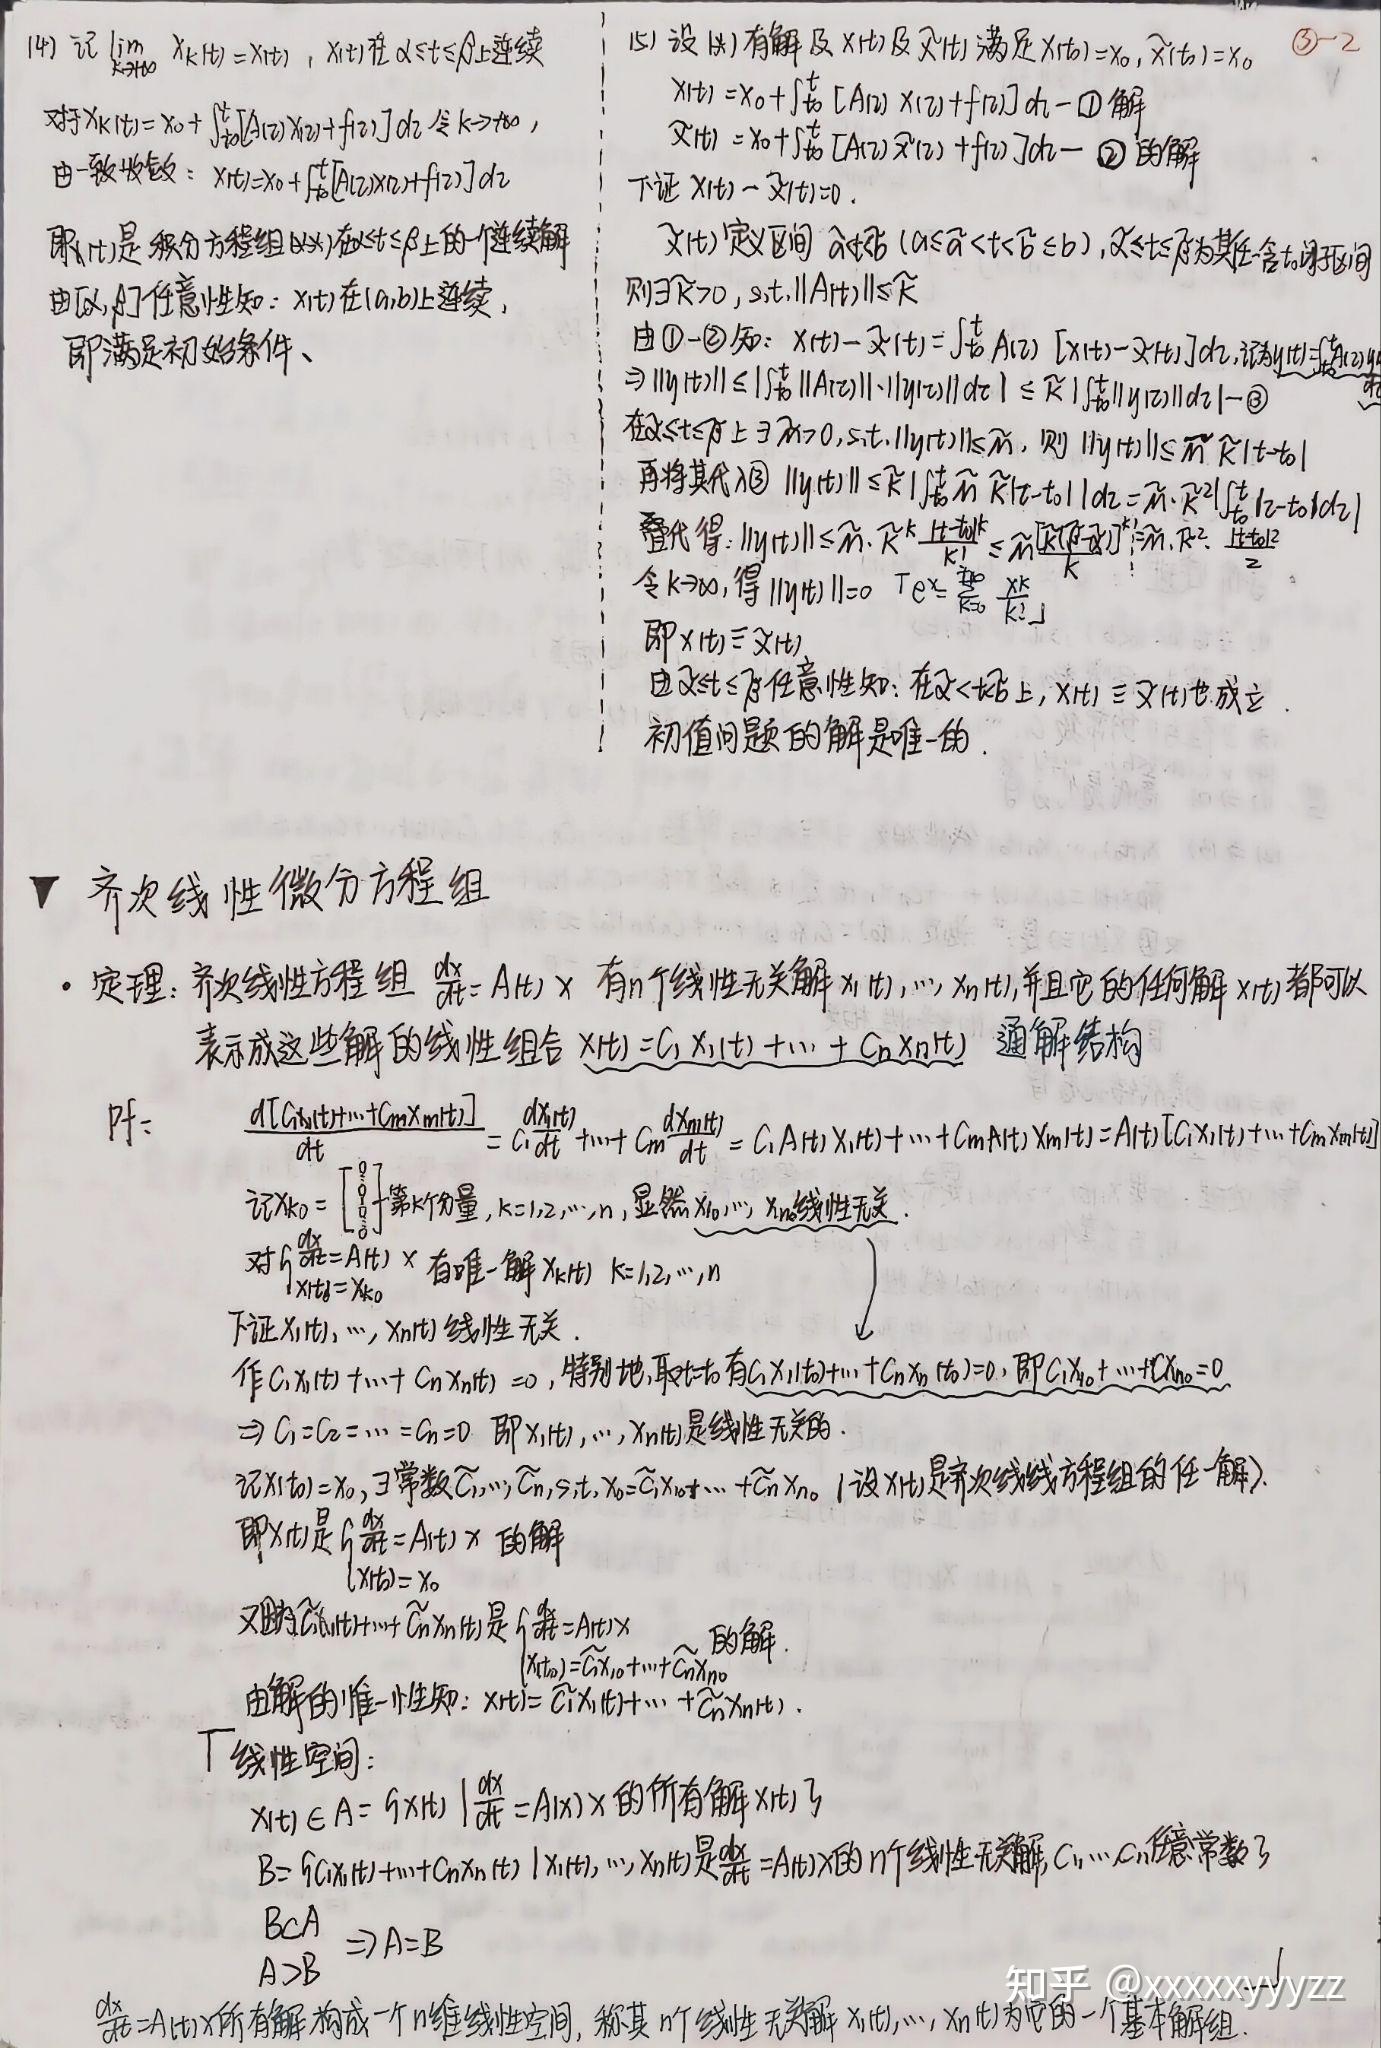 ③-2
(4) 记 lim_{k→+∞} x_k(t)=x(t), x(t)在α≤t≤β上连续
对于x_k(t)=x_0+∫_{t_0}^t[A(τ)x(τ)+f(τ)]dτ 令k→+∞,
由一致收敛: x(t)=x_0+∫_{t_0}^t[A(τ)x(τ)+f(τ)]dτ
即x(t)是积分方程组(**)在α≤t≤β上的一个连续解
由[α,β]任意性知: x(t)在(a,b)上连续,
即满足初始条件、
(5) 设(*)有解及x(t)及x̃(t)满足x(t_0)=x_0, x̃(t_0)=x_0
x(t)=x_0+∫_{t_0}^t[A(τ)x(τ)+f(τ)]dτ—①解
x̃(t)=x_0+∫_{t_0}^t[A(τ)x̃(τ)+f(τ)]dτ—②的解
下证x(t)-x̃(t)=0.
x̃(t)定义区间ã<t<b̃(a≤ã<t<b̃≤b), α̃≤t≤β̃为其任一含t_0闭子区间
则∃k̃>0, s.t.||A(t)||≤k̃
由①-②知: x(t)-x̃(t)=∫_{t_0}^t A(τ)[x(τ)-x̃(τ)]dτ, 记为y(t)=∫_{t_0}^t A(τ)y(τ)dτ
⇒||y(t)||≤|∫_{t_0}^t||A(τ)||·||y(τ)||dτ|≤k̃|∫_{t_0}^t||y(τ)||dτ|—③
在α̃≤t≤β̃上∃m̃>0, s.t.||y(t)||≤m̃, 则||y(t)||≤m̃k̃|t-t_0|
再将其代入③ ||y(t)||≤k̃|∫_{t_0}^t m̃k̃|τ-t_0|dτ|=m̃·k̃²|∫_{t_0}^t|τ-t_0|dτ|
=m̃·k̃²·|t-t_0|²/2
叠代得: ||y(t)||≤m̃·k̃^k |t-t_0|^k/k!≤m̃[k̃(β̃-α̃)]^k/k!
令k→∞,得||y(t)||=0 「e^x=∑_{k=0}^{+∞} x^k/k!」
即x(t)≡x̃(t)
由α̃≤t≤β̃任意性知: 在ã<t<b̃上, x(t)≡x̃(t)也成立.
初值问题的解是唯一的.
▼ 齐次线性微分方程组
· 定理: 齐次线性方程组 dx/dt=A(t)x 有n个线性无关解x_1(t),…,x_n(t),并且它的任何解x(t)都可以
表示成这些解的线性组合 x(t)=C_1x_1(t)+…+C_nx_n(t) 通解结构
Pf: d[C_1x_1(t)+…+C_mx_m(t)]/dt=C_1dx_1(t)/dt+…+C_mdx_m(t)/dt=C_1A(t)x_1(t)+…+C_mA(t)x_m(t)=A(t)[C_1x_1(t)+…+C_mx_m(t)]
记x_{k0}=[0 0 1 0 0]第k个分量, k=1,2,…,n, 显然x_{10},…,x_{n0}线性无关.
对{dx/dt=A(t)x
x(t_0)=x_{k0} 有唯一解x_k(t) k=1,2,…,n
下证x_1(t),…,x_n(t)线性无关.
作C_1x_1(t)+…+C_nx_n(t)=0, 特别地,取t=t_0有C_1x_1(t_0)+…+C_nx_n(t_0)=0, 即C_1x_{10}+…+C_nx_{n0}=0
⇒C_1=C_2=…=C_n=0 即x_1(t),…,x_n(t)是线性无关的.
记x(t_0)=x_0,∃常数C̃_1,…,C̃_n,s.t.x_0=C̃_1x_{10}+…+C̃_nx_{n0} (设x(t)是齐次线线方程组的任一解).
即x(t)是{dx/dt=A(t)x 的解
x(t_0)=x_0
又因为C̃_1x_1(t)+…+C̃_nx_n(t)是{dx/dt=A(t)x 的解.
x(t_0)=C̃_1x_{10}+…+C̃_nx_{n0}
由解的惟一性知: x(t)=C̃_1x_1(t)+…+C̃_nx_n(t).
「线性空间:
x(t)∈A={x(t)|dx/dt=A(x)x的所有解x(t)}
B={C_1x_1(t)+…+C_nx_n(t)|x_1(t),…,x_n(t)是dx/dt=A(t)x的n个线性无关解,C_1,…,C_n任意常数}
B⊂A
A⊃B ⇒A=B
」
dx/dt=A(t)x所有解构成一个n维线性空间, 称其n个线性无关解x_1(t),…,x_n(t)为它的一个基本解组.
知乎 @xxxxxyyyzz